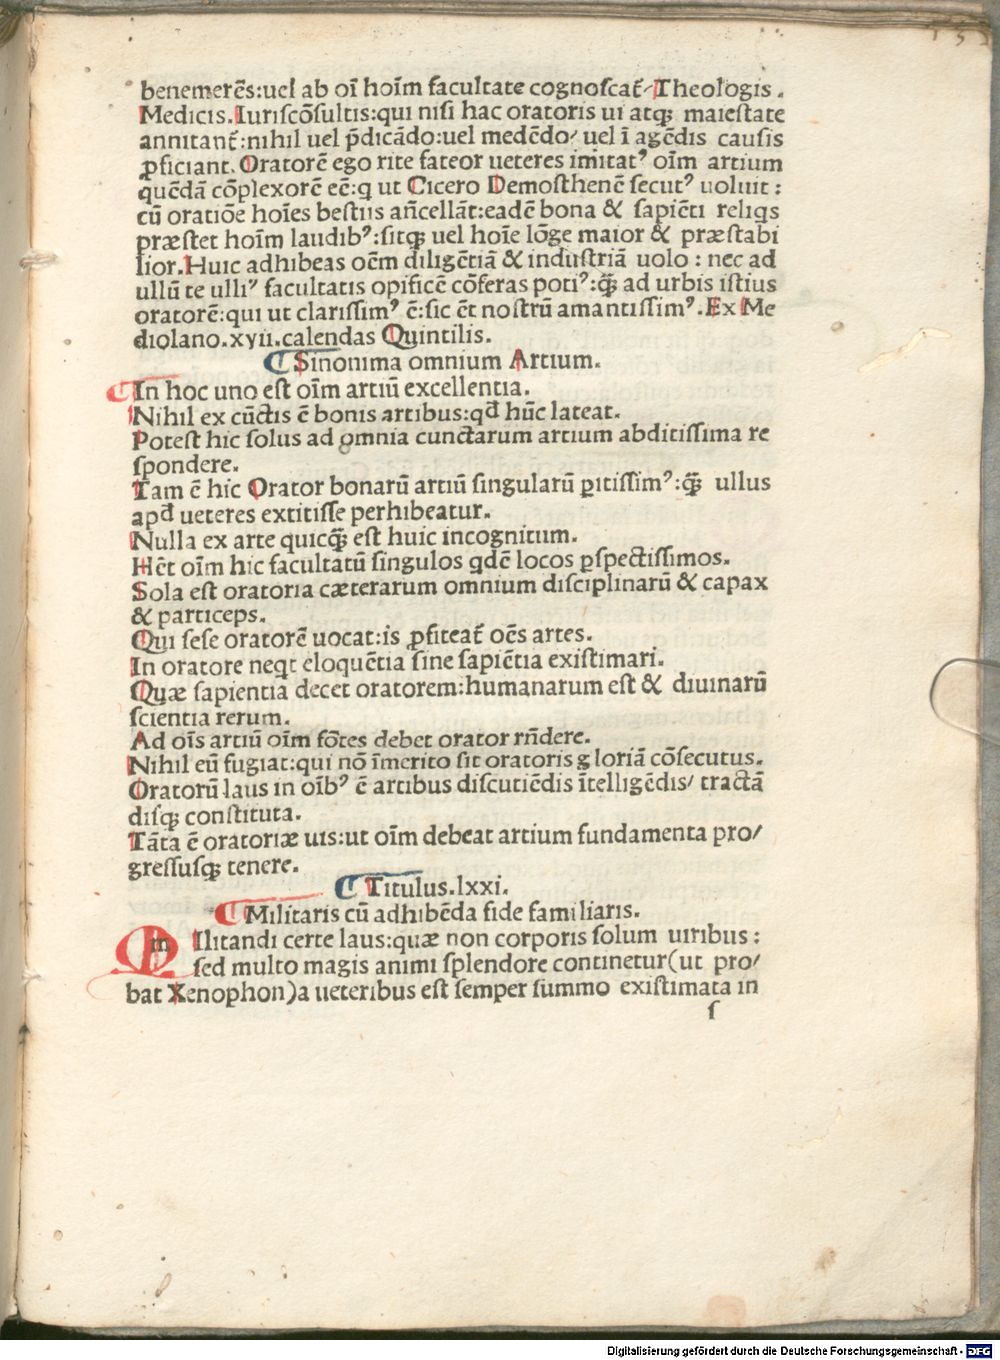 benemerēs:uel ab oī hoīm facultate cognoscat᷑/Theologis.
Medicis.Iuriscōsultis:qui nisi hac oratoris ui atqꝫ maiestate
annitant᷑:nihil uel p̄dicādo:uel medēdo/ uel ī agēdis causis
ꝓficiant.Oratorē ego rite fateor ueteres imitatꝰ oīm artium
quēdā cōplexorē eē:q ut Cicero Demosthenē secutꝰ uoluit:
cū oratiōe hoīes bestiis añcellāt:eadē bona & sapiēti reliqs
præstet hoīm laudibꝰ:sitqꝫ uel hoīe lōge maior & præstabi
lior.Huic adhibeas oēm diligētiā & industriā uolo: nec ad
ullū te ulliꝰ facultatis opificē cōferas potiꝰ:qꝫ̄ ad urbis istius
oratorē:qui ut clarissimꝰ ē:sic ēt nostrū amantissimꝰ.Ex Me
diolano.xyii.calendas Quintilis.
⸿ Sinonima omnium Artium.
⸿In hoc uno est oīm artiū excellentia.
Nihil ex cūctis ē bonis artibus:qd̄ hūc lateat.
Potest hic solus ad omnia cunctarum artium abditissima re
spondere.
Tam ē hic Orator bonarū artiū singularū ꝑitissimꝰ:qꝫ̄ ullus
apd̄ ueteres extitisse perhibeatur.
Nulla ex arte quicqꝫ̄ est huic incognitum.
Hēt oīm hic facultatū singulos qdē locos ꝑspectissimos.
Sola est oratoria cæterarum omnium disciplinarū & capax
& particeps.
Qui sese oratorē uocat:is ꝓfiteat᷑ oēs artes.
In oratore neqt eloquētia sine sapiētia existimari.
Quæ sapientia decet oratorem:humanarum est & diuinarū
scientia rerum.
Ad oīs artiū oīm fōtes debet orator rñdere.
Nihil eū fugiat:qui nō īmerito sit oratoris gloriā cōsecutus.
Oratorū laus in oībꝰ ē artibus discutiēdis ītelligēdis/ tractā
disqꝫ constituta.
Tāta ē oratoriæ uis:ut oīm debeat artium fundamenta pro/
gressusqꝫ tenere.
⸿ Titulus.lxxi.
⸿ Militaris cū adhibēda fide familiaris.
MIlitandi certe laus:quæ non corporis solum uiribus:
sed multo magis animi splendore continetur(ut pro/
bat Xenophon)a ueteribus est semper summo existimata in
s
Digitalisierung gefördert durch die Deutsche Forschungsgemeinschaft - DFG